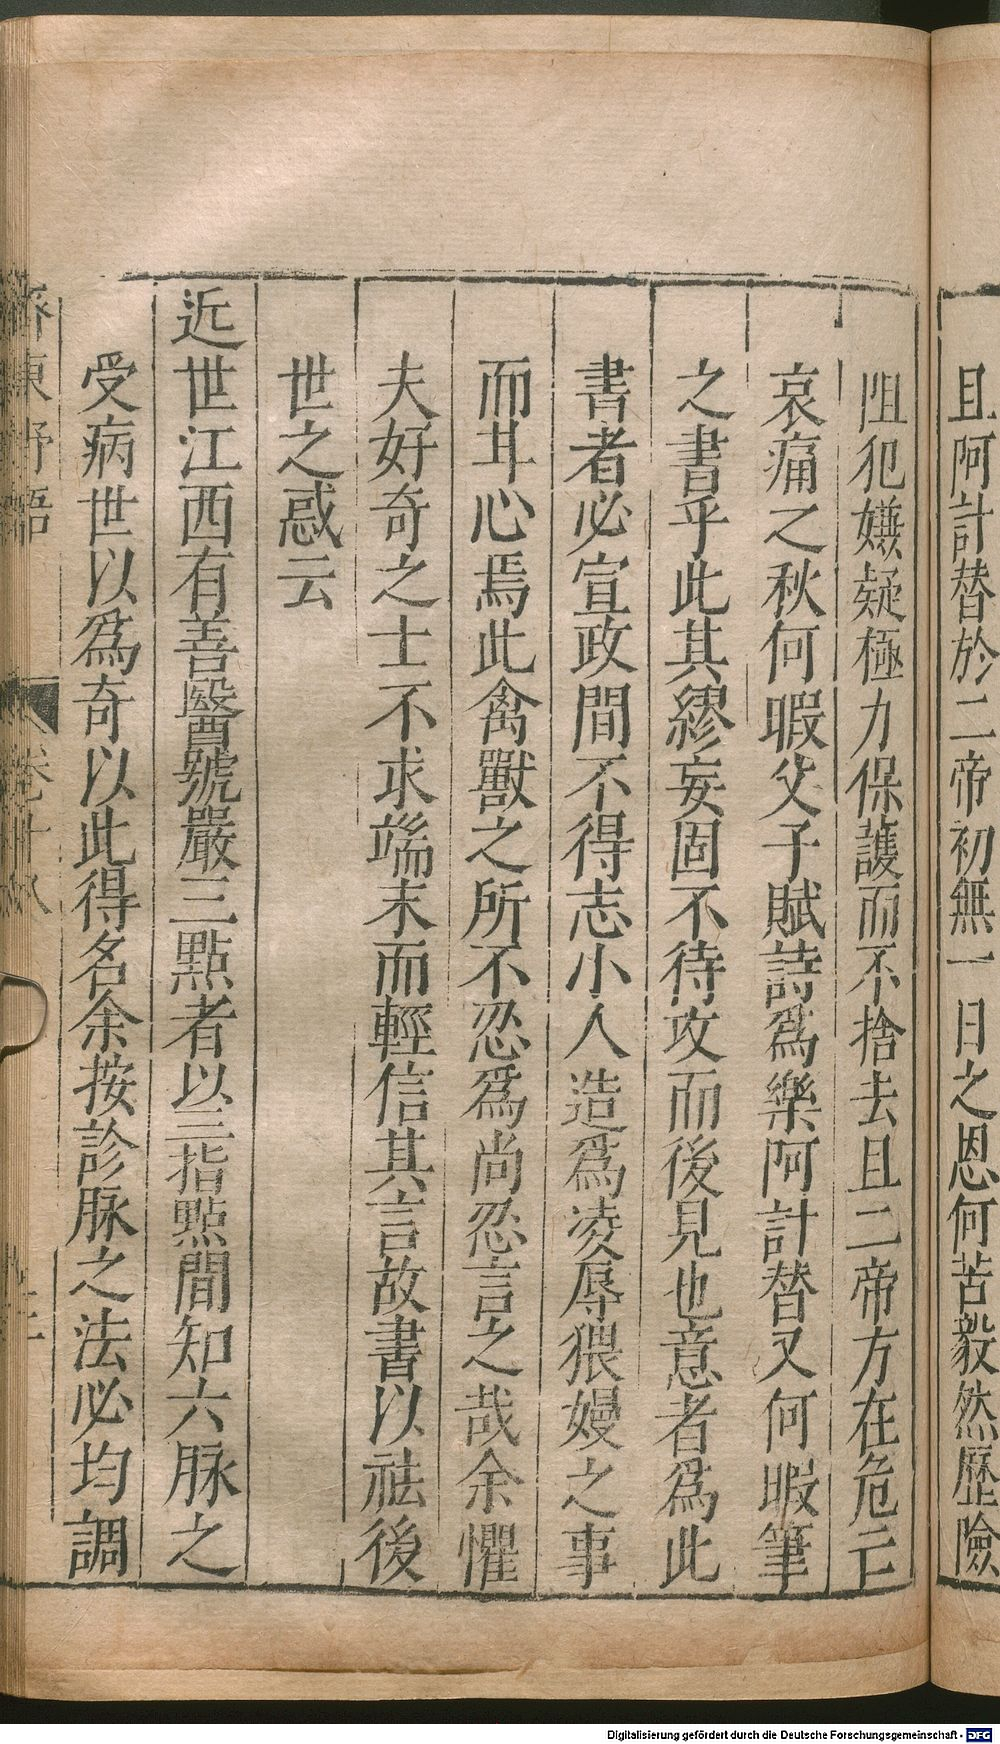 且阿計替於二帝初無一日之恩何苦毅然歷險
阻犯嫌疑極力保護而不捨去且二帝方在危亡
哀痛之秋何暇父子賦詩爲樂阿計替又何暇筆
之書乎此其繆妄固不待攻而後見也意者爲此
書者必宣政間不得志小人造爲凌辱猥嫚之事
而甘心焉此禽獸之所不忍爲尚忍言之哉余懼
夫好奇之士不求端末而輕信其言故書以祛後
世之惑云
近世江西有善醫號嚴三點者以三指點間知六脉之
受病世以爲奇以此得名余按診脉之法必均調
齊東野語 卷十八
Digitalisierung gefördert durch die Deutsche Forschungsgemeinschaft - DFG